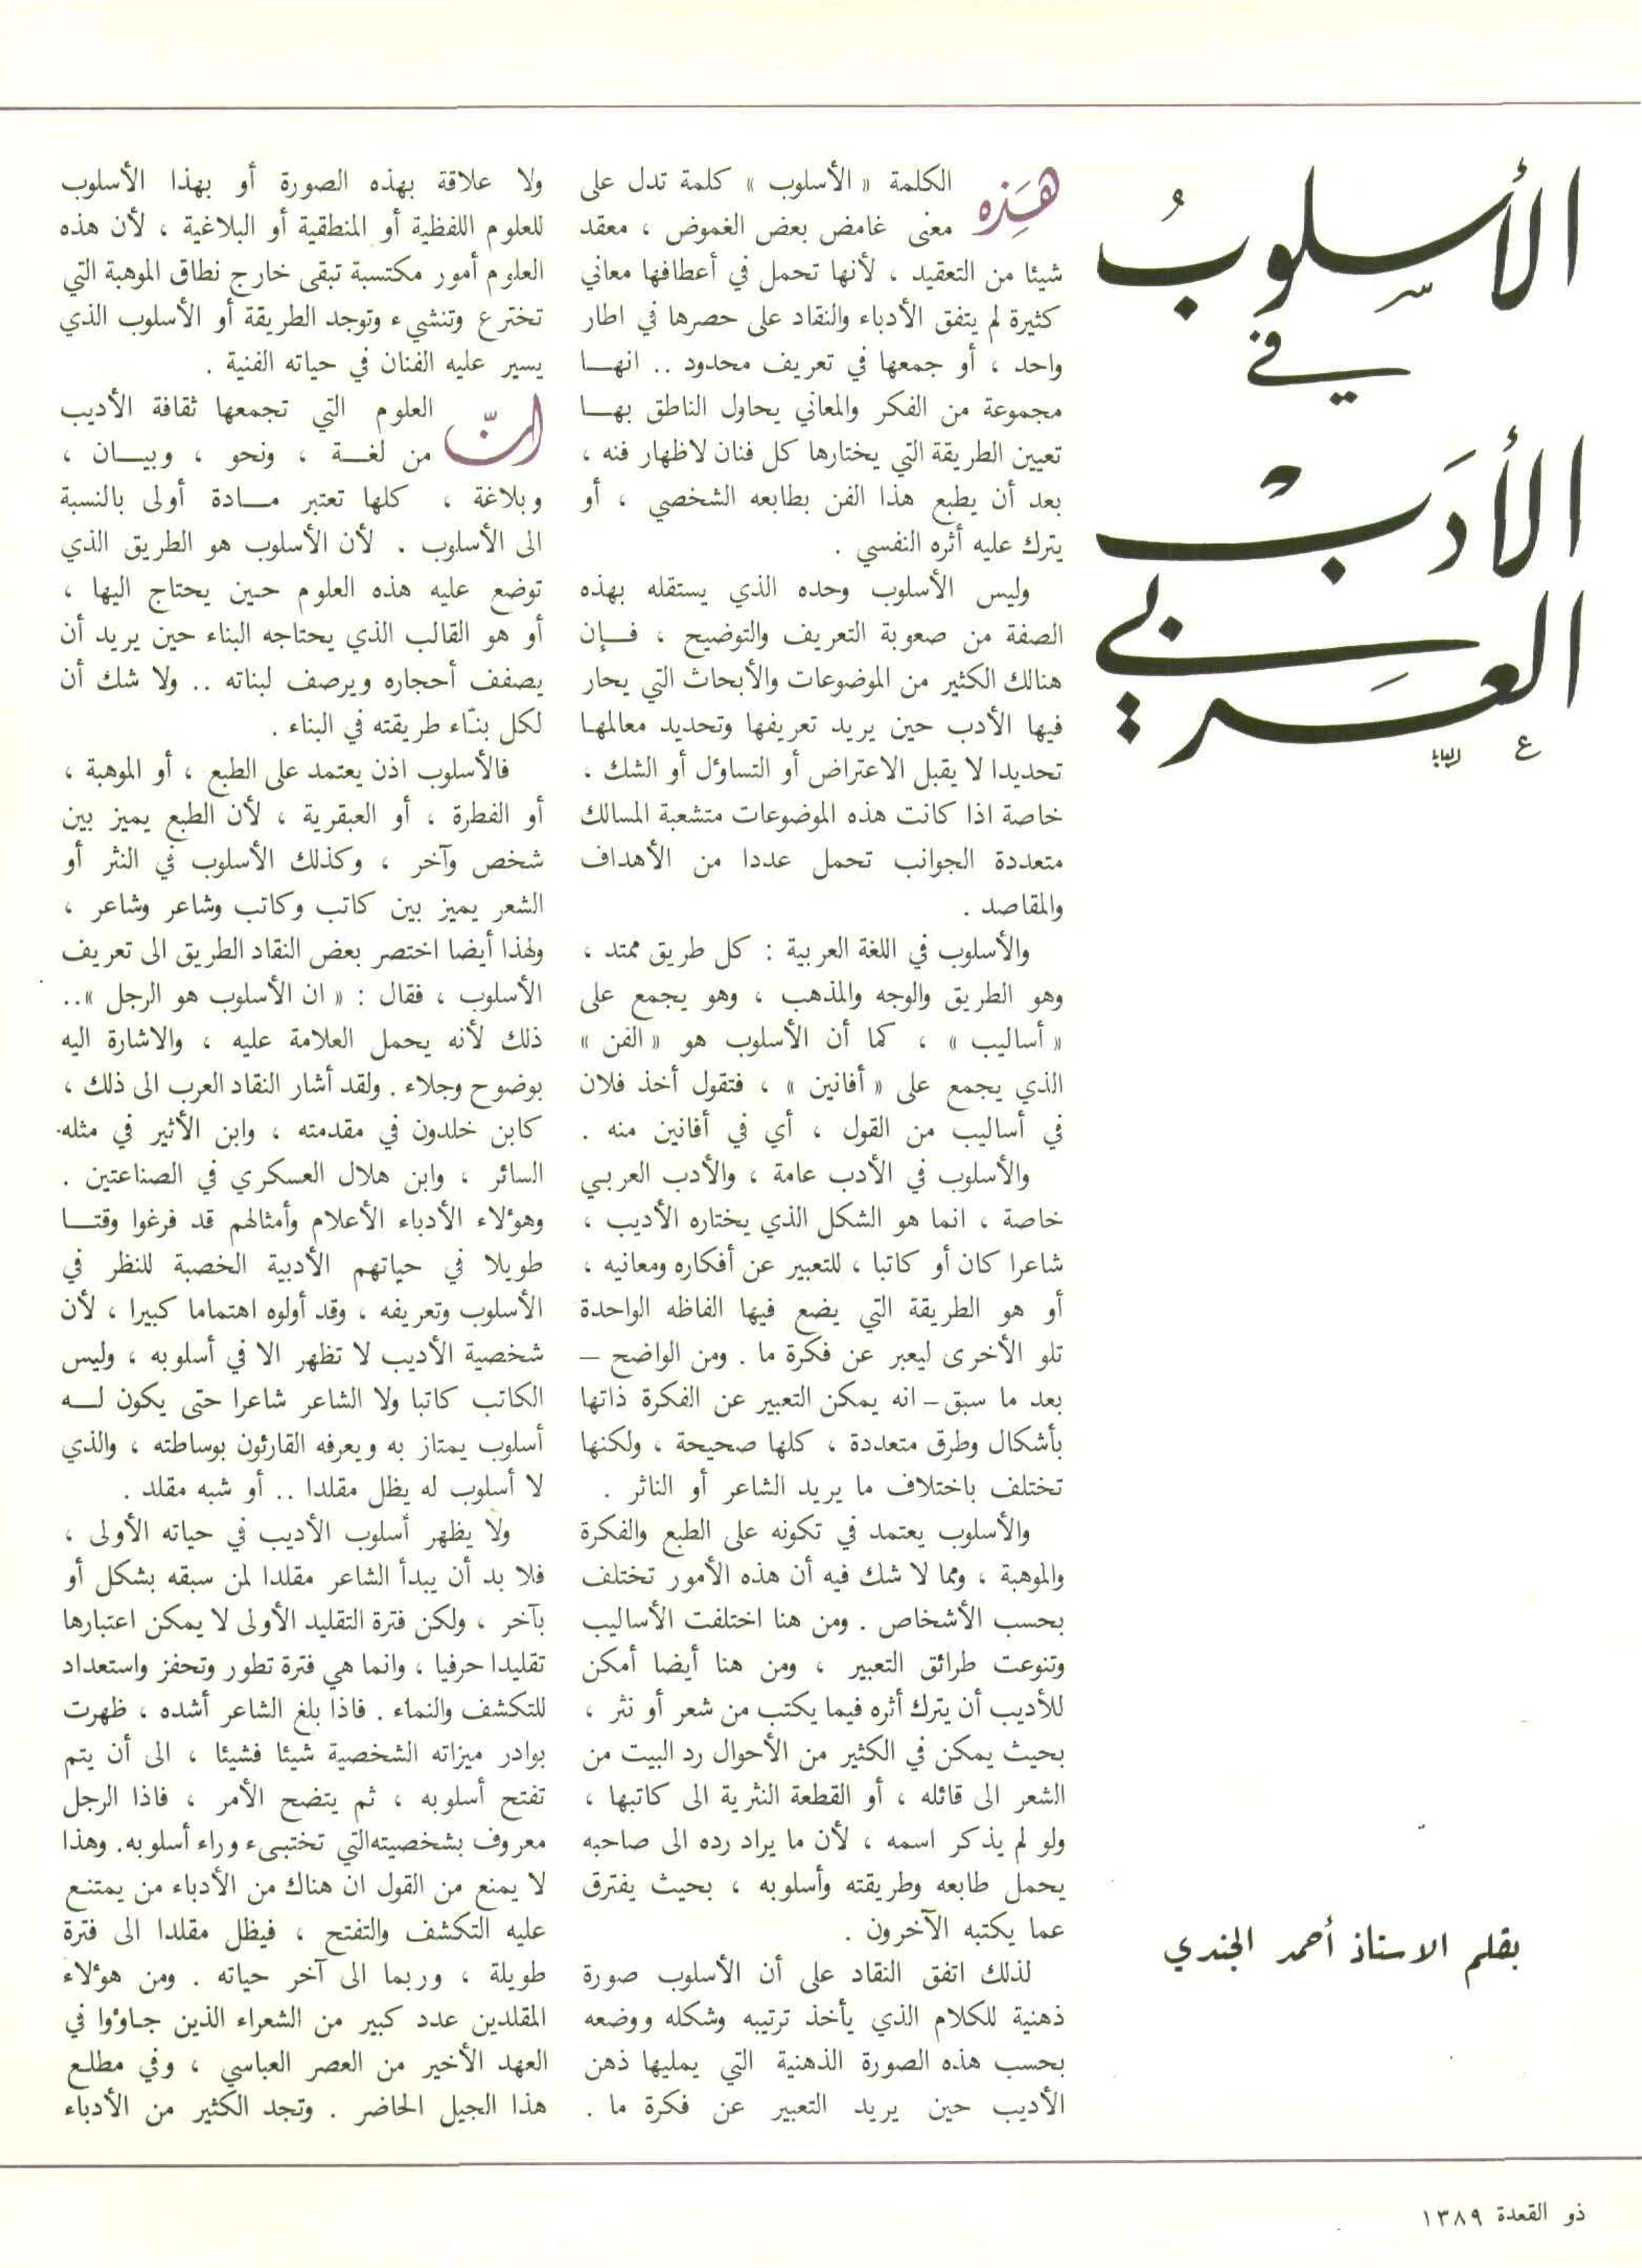 الأسلوبُ
في
الأدَبْ
العَربي
بقلم الاستاذ أحمد الجندي
هَذِه الكلمة « الأسلوب » كلمة تدل على
معنى غامض بعض الغموض ، معقد
شيئا من التعقيد ، لأنها تحمل في أعطافها معاني
كثيرة لم يتفق الأدباء والنقاد على حصرها في اطار
واحد ، أو جمعها في تعريف محدود .. انهـا
مجموعة من الفكر والمعاني يحاول الناطق بهـا
تعيين الطريقة التي يختارها كل فنان لاظهار فنه ،
بعد أن يطبع هذا الفن بطابعه الشخصي ، أو
يترك عليه أثره النفسي .
وليس الأسلوب وحده الذي يستقله بهذه
الصفة من صعوبة التعريف والتوضيح ، فـإن
هنالك الكثير من الموضوعات والأبحاث التي يحار
فيها الأدب حين يريد تعريفها وتحديد معالمها
تحديدا لا يقبل الاعتراض أو التساؤل أو الشك ،
خاصة اذا كانت هذه الموضوعات متشعبة المسالك
متعددة الجوانب تحمل عددا من الأهداف
والمقاصد .
والأسلوب في اللغة العربية : كل طريق ممتد ،
وهو الطريق والوجه والمذهب ، وهو يجمع على
« أساليب » ، كما أن الأسلوب هو « الفن »
الذي يجمع على « أفانين » ، فتقول أخذ فلان
في أساليب من القول ، أي في أفانين منه .
والأسلوب في الأدب عامة ، والأدب العربي
خاصة ، انما هو الشكل الذي يختاره الأديب ،
شاعرا كان أو كاتبا ، للتعبير عن أفكاره ومعانيه ،
أو هو الطريقة التي يضع فيها الفاظه الواحدة
تلو الأخرى ليعبر عن فكرة ما . ومن الواضح –
بعد ما سبق – انه يمكن التعبير عن الفكرة ذاتها
بأشكال وطرق متعددة ، كلها صحيحة ، ولكنها
تختلف باختلاف ما يريد الشاعر أو الناثر .
والأسلوب يعتمد في تكونه على الطبع والفكرة
والموهبة ، ومما لا شك فيه أن هذه الأمور تختلف
بحسب الأشخاص . ومن هنا اختلفت الأساليب
وتنوعت طرائق التعبير ، ومن هنا أيضا أمكن
للأديب أن يترك أثره فيما يكتب من شعر أو نثر ،
بحيث يمكن في الكثير من الأحوال رد البيت من
الشعر الى قائله ، أو القطعة النثرية الى كاتبها ،
ولو لم يذكر اسمه ، لأن ما يراد رده الى صاحبه
يحمل طابعه وطريقته وأسلوبه ، بحيث يفترق
عما يكتبه الآخرون .
لذلك اتفق النقاد على أن الأسلوب صورة
ذهنية للكلام الذي يأخذ ترتيبه وشكله ووضعه
بحسب هذه الصورة الذهنية التي يمليها ذهن
الأديب حين يريد التعبير عن فكرة ما .
ولا علاقة بهذه الصورة أو بهذا الأسلوب
للعلوم اللفظية أو المنطقية أو البلاغية ، لأن هذه
العلوم أمور مكتسبة تبقى خارج نطاق الموهبة التي
تخترع وتنشيء وتوجد الطريقة أو الأسلوب الذي
يسير عليه الفنان في حياته الفنية .
انّ العلوم التي تجمعها ثقافة الأديب
من لغـة ، ونحو ، وبيـان ،
وبلاغة ، كلها تعتبر مـادة أولى بالنسبة
الى الأسلوب . لأن الأسلوب هو الطريق الذي
توضع عليه هذه العلوم حين يحتاج اليها ،
أو هو القالب الذي يحتاجه البناء حين يريد أن
يصفف أحجاره ويرصف لبناته .. ولا شك أن
لكل بنّاء طريقته في البناء .
فالأسلوب اذن يعتمد على الطبع ، أو الموهبة ،
أو الفطرة ، أو العبقرية ، لأن الطبع يميز بين
شخص وآخر ، وكذلك الأسلوب في النثر أو
الشعر يميز بين كاتب وكاتب وشاعر وشاعر ،
ولهذا أيضا اختصر بعض النقاد الطريق الى تعريف
الأسلوب ، فقال : « ان الأسلوب هو الرجل »..
ذلك لأنه يحمل العلامة عليه ، والاشارة اليه
بوضوح وجلاء . ولقد أشار النقاد العرب الى ذلك ،
كابن خلدون في مقدمته ، وابن الأثير في مثله
السائر ، وابن هلال العسكري في الصناعتين .
وهؤلاء الأدباء الأعلام وأمثالهم قد فرغوا وقتـا
طويلا في حياتهم الأدبية الخصبة للنظر في
الأسلوب وتعريفه ، وقد أولوه اهتماما كبيرا ، لأن
شخصية الأديب لا تظهر الا في أسلوبه ، وليس
الكاتب كاتبا ولا الشاعر شاعرا حتى يكون لـه
أسلوب يمتاز به ويعرفه القارئون بوساطته ، والذي
لا أسلوب له يظل مقلدا .. أو شبه مقلد .
ولا يظهر أسلوب الأديب في حياته الأولى ،
فلا بد أن يبدأ الشاعر مقلدا لمن سبقه بشكل أو
بآخر ، ولكن فترة التقليد الأولى لا يمكن اعتبارها
تقليدا حرفيا ، وانما هي فترة تطور وتحفز واستعداد
للتكشف والنماء . فاذا بلغ الشاعر أشده ، ظهرت
بوادر ميزاته الشخصية شيئا فشيئا ، الى أن يتم
تفتح أسلوبه ، ثم يتضح الأمر ، فاذا الرجل
معروف بشخصيته التي تختبىء وراء أسلوبه. وهذا
لا يمنع من القول ان هناك من الأدباء من يمتنع
عليه التكشف والتفتح ، فيظل مقلدا الى فترة
طويلة ، وربما الى آخر حياته . ومن هؤلاء
المقلدين عدد كبير من الشعراء الذين جاؤوا في
العهد الأخير من العصر العباسي ، وفي مطلع
هذا الجيل الحاضر . وتجد الكثير من الأدباء
ذو القعدة ١٣٨٩